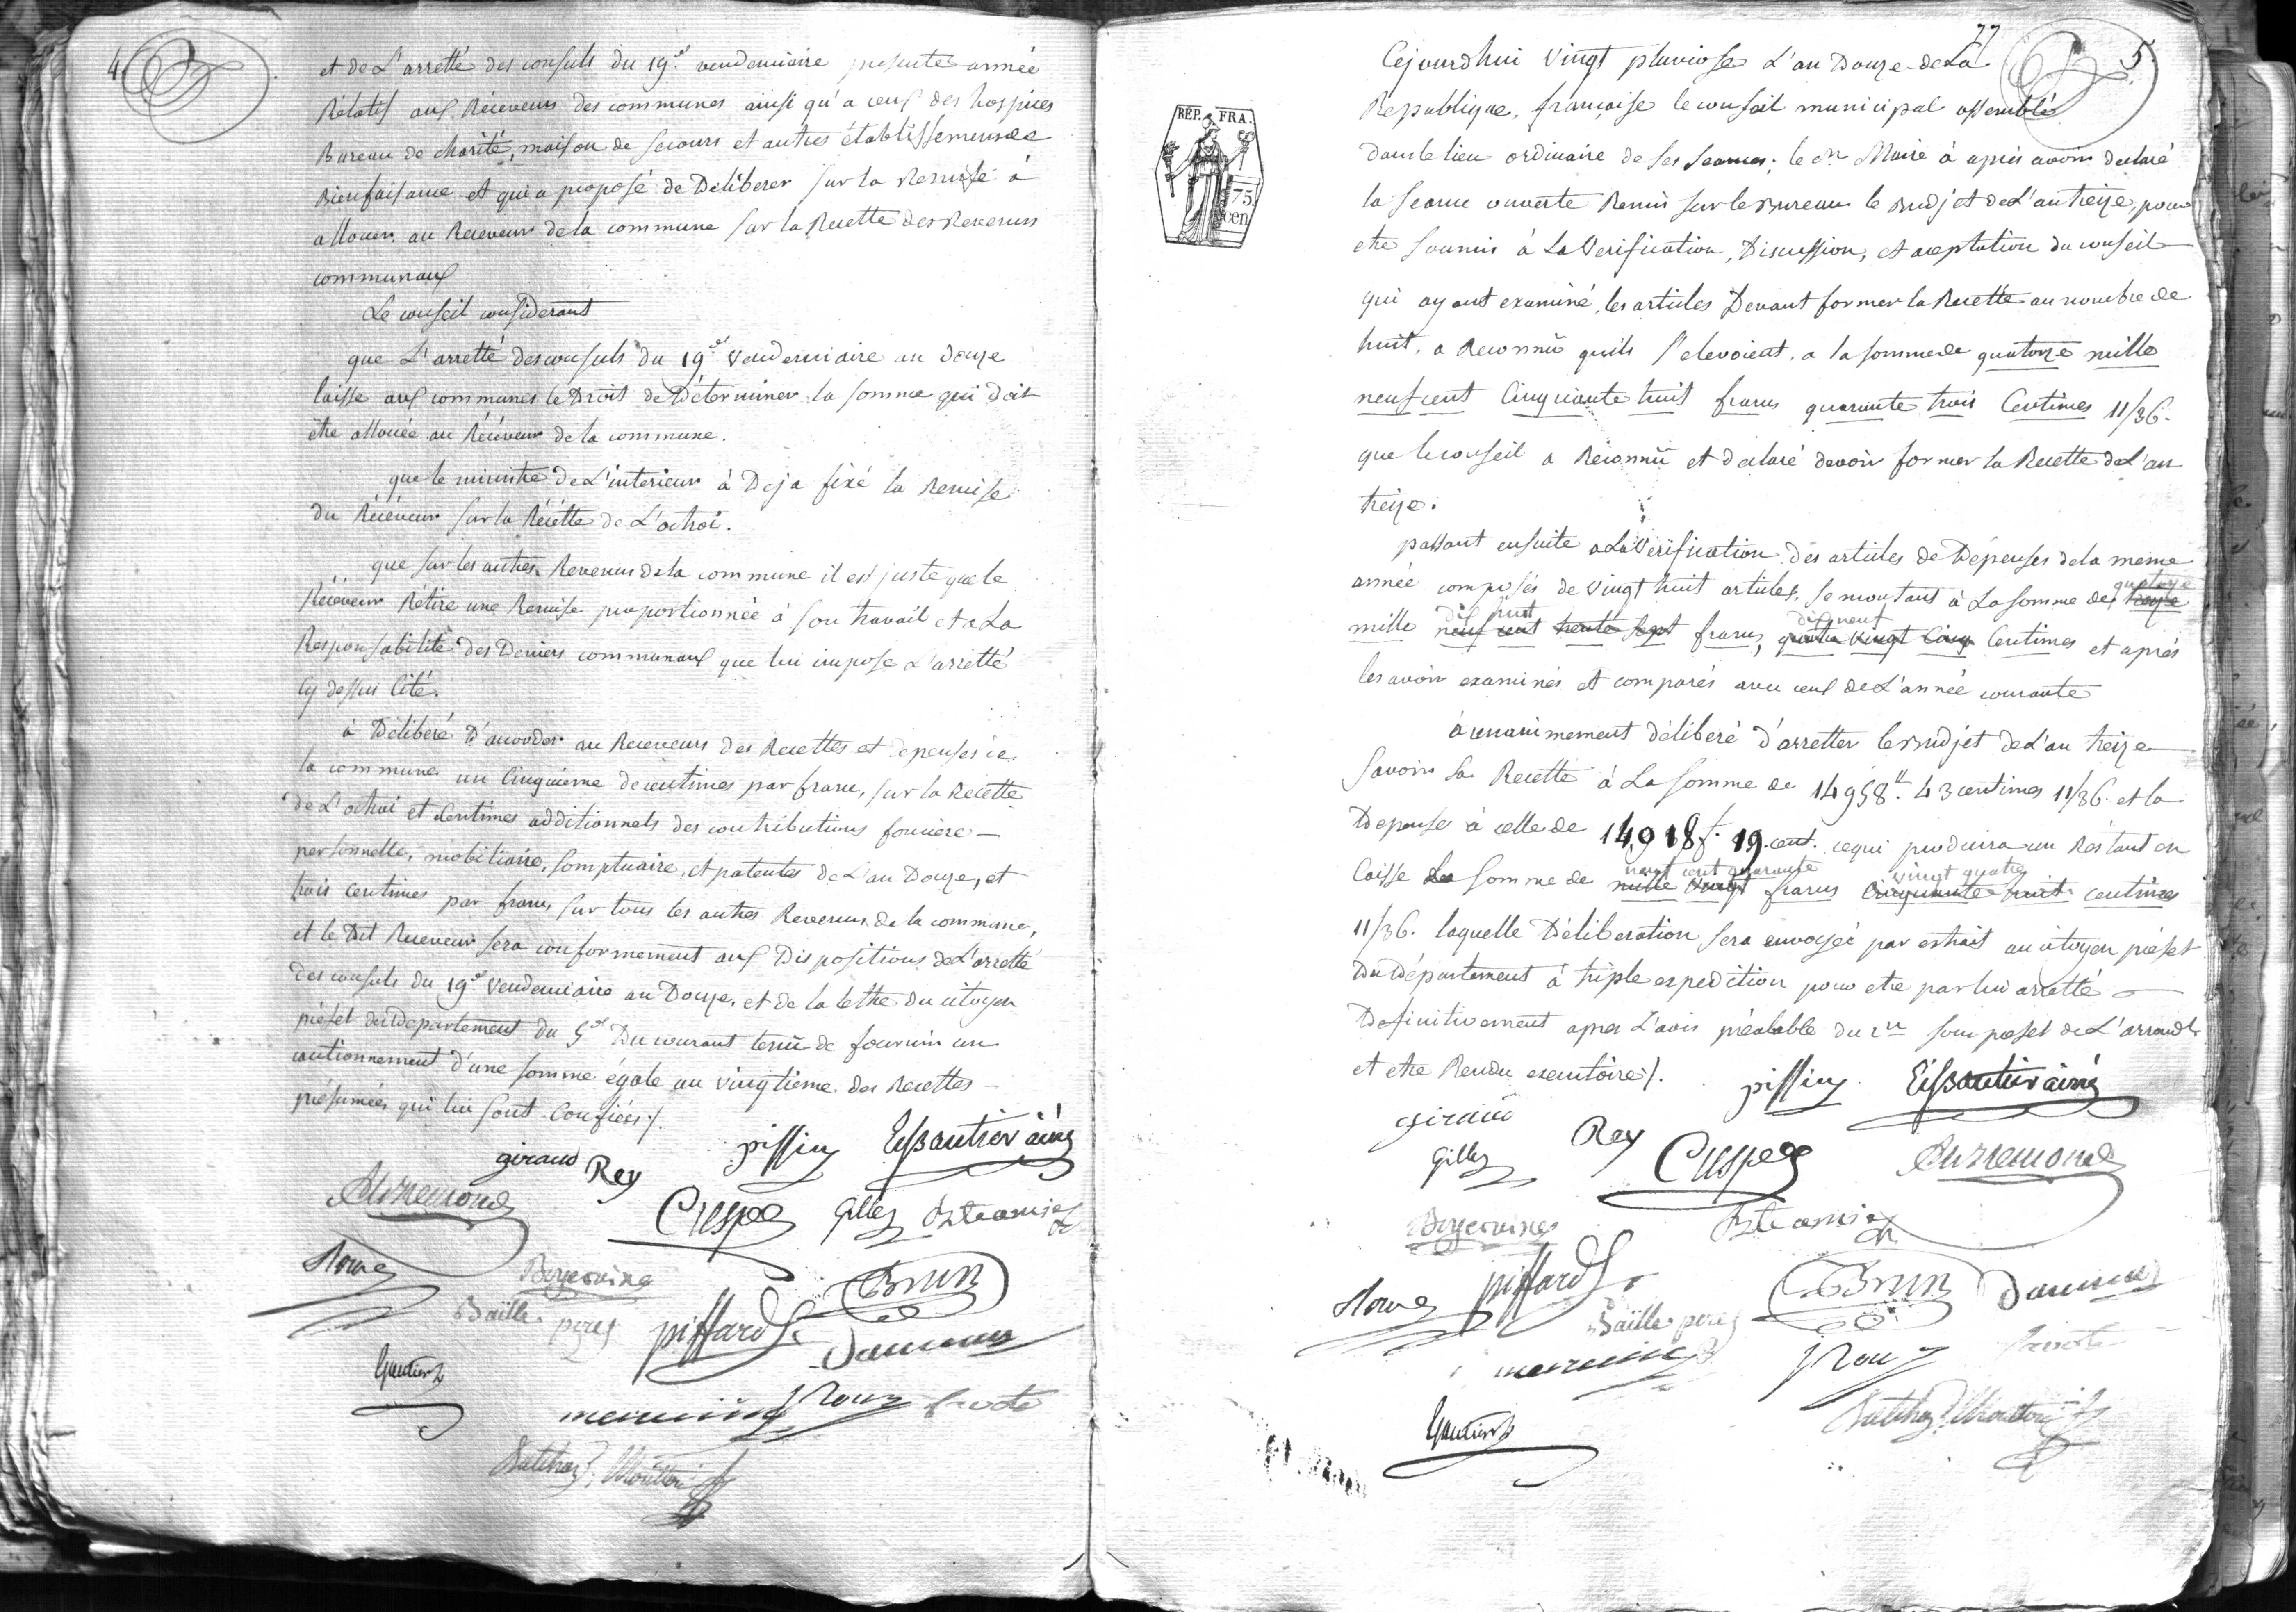 4.
et de L'arretté des consuls du 19.e vendemiaire presente année
Rélatif aux Réceveurs des communes ainsi qu'a ceux des hospices
Bureau de charité, maison de secours et autres établissemens de
Bienfaisance et qui a proposé de Déliberer sur la Remise à
allouer au Receveur de la commune sur la Recette des Revenus
communaux
Le conseil considerant
que L'arretté des consuls du 19.e Vendemiaire an douze
laisse aux communes le Droit de Déterminer la somme qui doit
être allouée au Réceveur de la commune.
que le ministre de L'interieur à Deja fixé la Remise
du Réceveur sur la Récette de L'octroi.
que sur les autres Revenus de la commune il est juste que le
Réceveur Rétire une Remise proportionnée à son travail et a La
Responsabilité des Deniers communaux que lui impose L'arretté
Cy dessus Cité.
à Déliberé D'accorder au Receveurs des Recettes et depenses de
la commune un Cinquieme de centimes par franc, sur la Recette
de L'octroi et Centimes additionnels des contributions fonciere
personnelle, mobiliaire, somptuaire, et patentes de L'an Douze, et
trois Centimes par franc sur tous les autres Revenus de la commune,
et le Dit Receveur sera conformement aux Dispositions de L'arretté
des consuls du 19.e Vendemiaire an Douze, et de la lettre du citoyen
préfet du Département du 5.e Du courant tenu de fournir un
cautionnement d'une somme égale au vingtieme des Recettes
présumées qui lui sont Confiées ./.
giraud Rey pissin Eissautier ainé
Aurremond Crespe Gilles
Boyer ainé Brun
Baille pere piffard
Gautier
J Roux
77
5.
Cejourdhui Vingt pluviose L'an Douze de La
Republique française le conseil municipal assemblé
dans le lieu ordinaire de ses seances; le cn Maire à après avoir declaré
la seance ouverte Remis sur le Bureau le Budjet de L'an treize, pour
etre soumis à La Verification, Discussion, et acceptation du conseil
qui ayant examiné, les articles Devant former la Recette au nombre de
huit, a Reconnu quils s'elevoient, a la somme de quatorze mille
neuf cent Cinquante huit francs quarante trois Centimes 11/36.
que le conseil a Reconnu et declaré devoir former la Recette de L'an
treize.
passant ensuite a La Verification des articles de Dépenses de la meme
année composés de Vingt huit articles, se montant à La somme de treize quatorze
mille neuf cent trente sept dix huit francs, quatre vingt Cinq dix neuf Centimes et après
les avoir examinés et comparés avec ceux de L'année courante
à unanimement déliberé d'arretter le Budjet de L'an treize
Savoir La Recette à La Somme de 14958.tt 43 centimes 11/36. et la
Depense à celle de 14918 f. 19. cent. ce qui produira un Restant en
Caisse La Somme de mille Vingt neuf cent quarante francs Cinquante huit vingt quatre centimes
11/36. laquelle Déliberation sera envoyée par extrait au citoyen préfet
Du Département à triple expedition pour etre par lui arretté
Definitivement apres L'avis préalable du cn sous prefet de L'arrondt
et etre Rendu executoire ./.
giraud pissin Eissautier ainé
Gilles Rey Crespe Aurremond
Boyer ainé
piffard Brun
Baille pere
J Roux
Gautier
RÉP. FRA.
75
cen